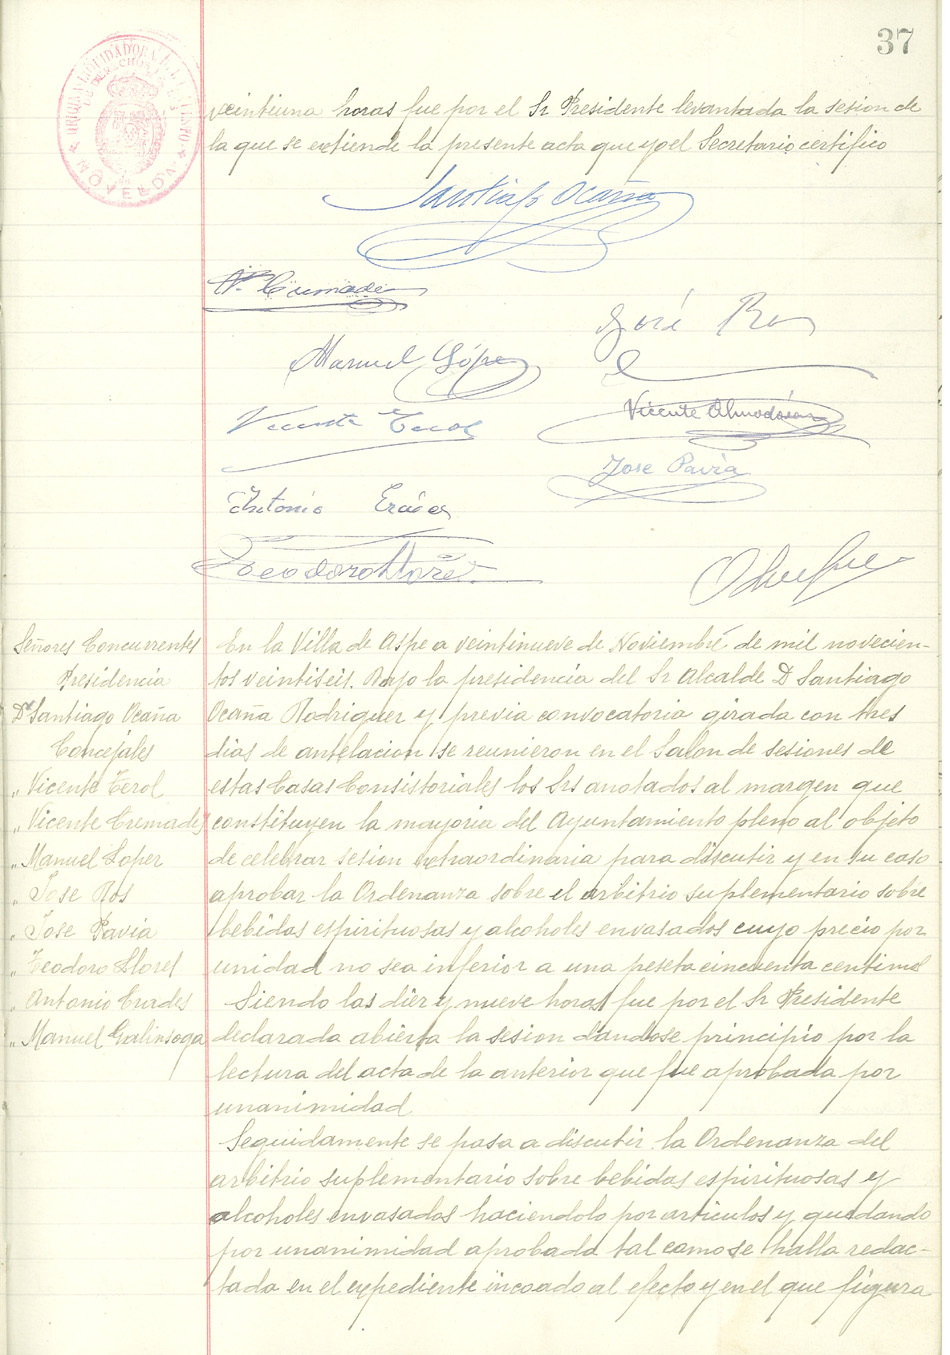 37
NOVELDA
veintiuna horas fue por el Sr Presidente levantada la sesion de
la que se extiende la presente acta que yo el Secretario certifico
Santiago Ocaña
V. Cremades
José Ros
Manuel López
Vicente Almodóvar
Vicente Cerol
Jose Pavia
Antonio Erades
Teodoro Lloret
Señores Concurrentes
Presidencia
Dn Santiago Ocaña
Concejales
" Vicente Cerol
" Vicente Cremades
" Manuel Lopez
" Jose Ros
" Jose Pavia
" Teodoro Lloret
" Antonio Erades
" Manuel Galinsoga
En la Villa de Aspe a veintinueve de Noviembre de mil novecien-
tos veintiseis. Bajo la presidencia del Sr Alcalde D Santiago
Ocaña Rodriguez y previa convocatoria girada con tres
dias de antelacion se reunieron en el Salon de sesiones de
estas Casas Consistoriales los Srs anotados al margen que
constituyen la mayoria del Ayuntamiento pleno al objeto
de celebrar sesion extraordinaria para discutir y en su caso
aprobar la Ordenanza sobre el arbitrio suplementario sobre
bebidas espirituosas y alcoholes envasados cuyo precio por
unidad no sea inferior a una peseta cincuenta centimos
Siendo las diez y nueve horas fue por el Sr Presidente
declarada abierta la sesion dandose principio por la
lectura del acta de la anterior que fue aprobada por
unanimidad
Seguidamente se pasa a discutir la Ordenanza del
arbitrio suplementario sobre bebidas espirituosas y
alcoholes envasados haciendolo por articulos y quedando
por unanimidad aprobada tal como se halla redac-
tada en el expediente incoado al efecto y en el que figura